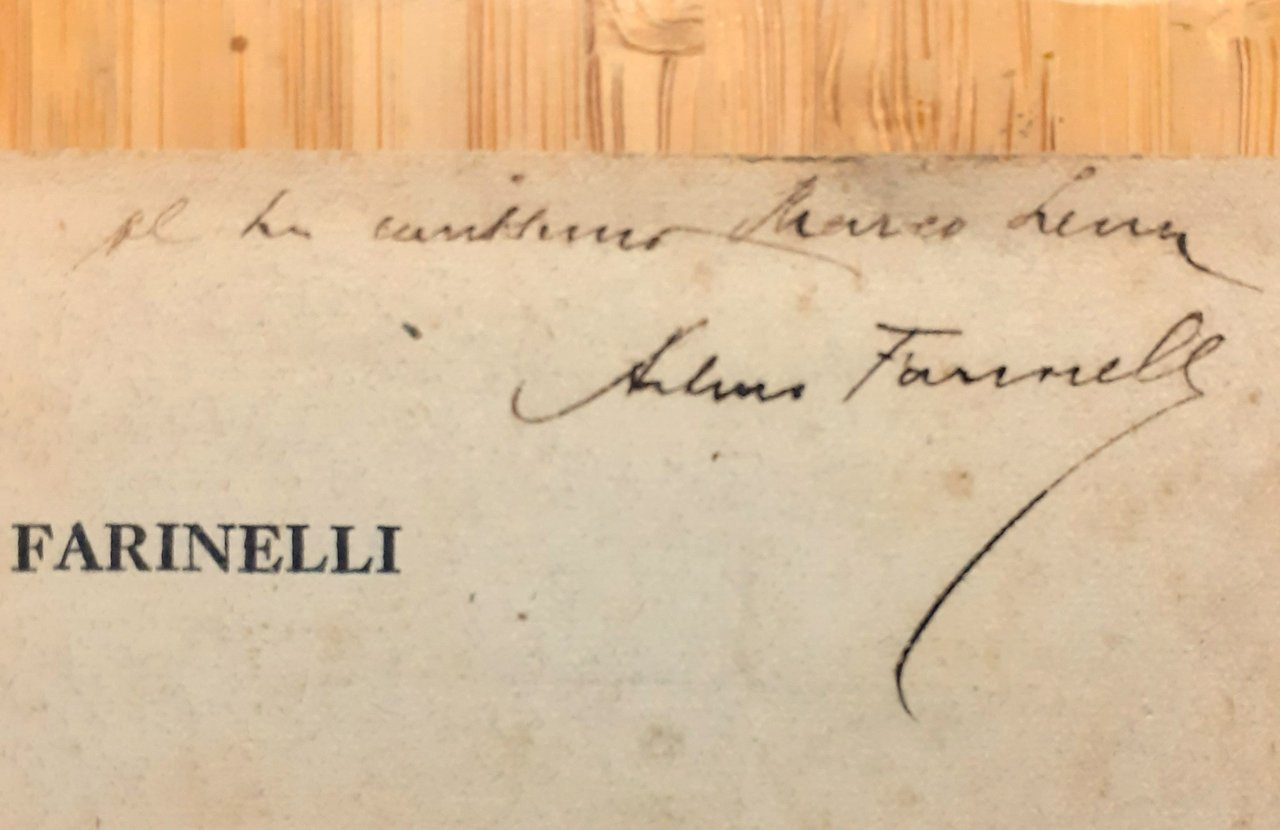 al tuo carissimo Marco Lessona
Arturo Farinelli
FARINELLI